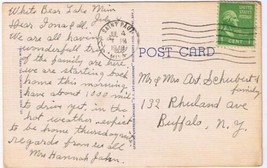 White Bear Lake Minn
Dear Tona & all, July
We are all having a
wonderful trip
of the family are here
we are starting back
home this morning
have about 1000 miles
to drive yet in the
hot weather expect
to be home thursday nite
regards from us all
Mrs Hannah John
POST CARD
Mr & Mrs Art Schubert &
family
132 Rhuland ave
Buffalo, N. Y.